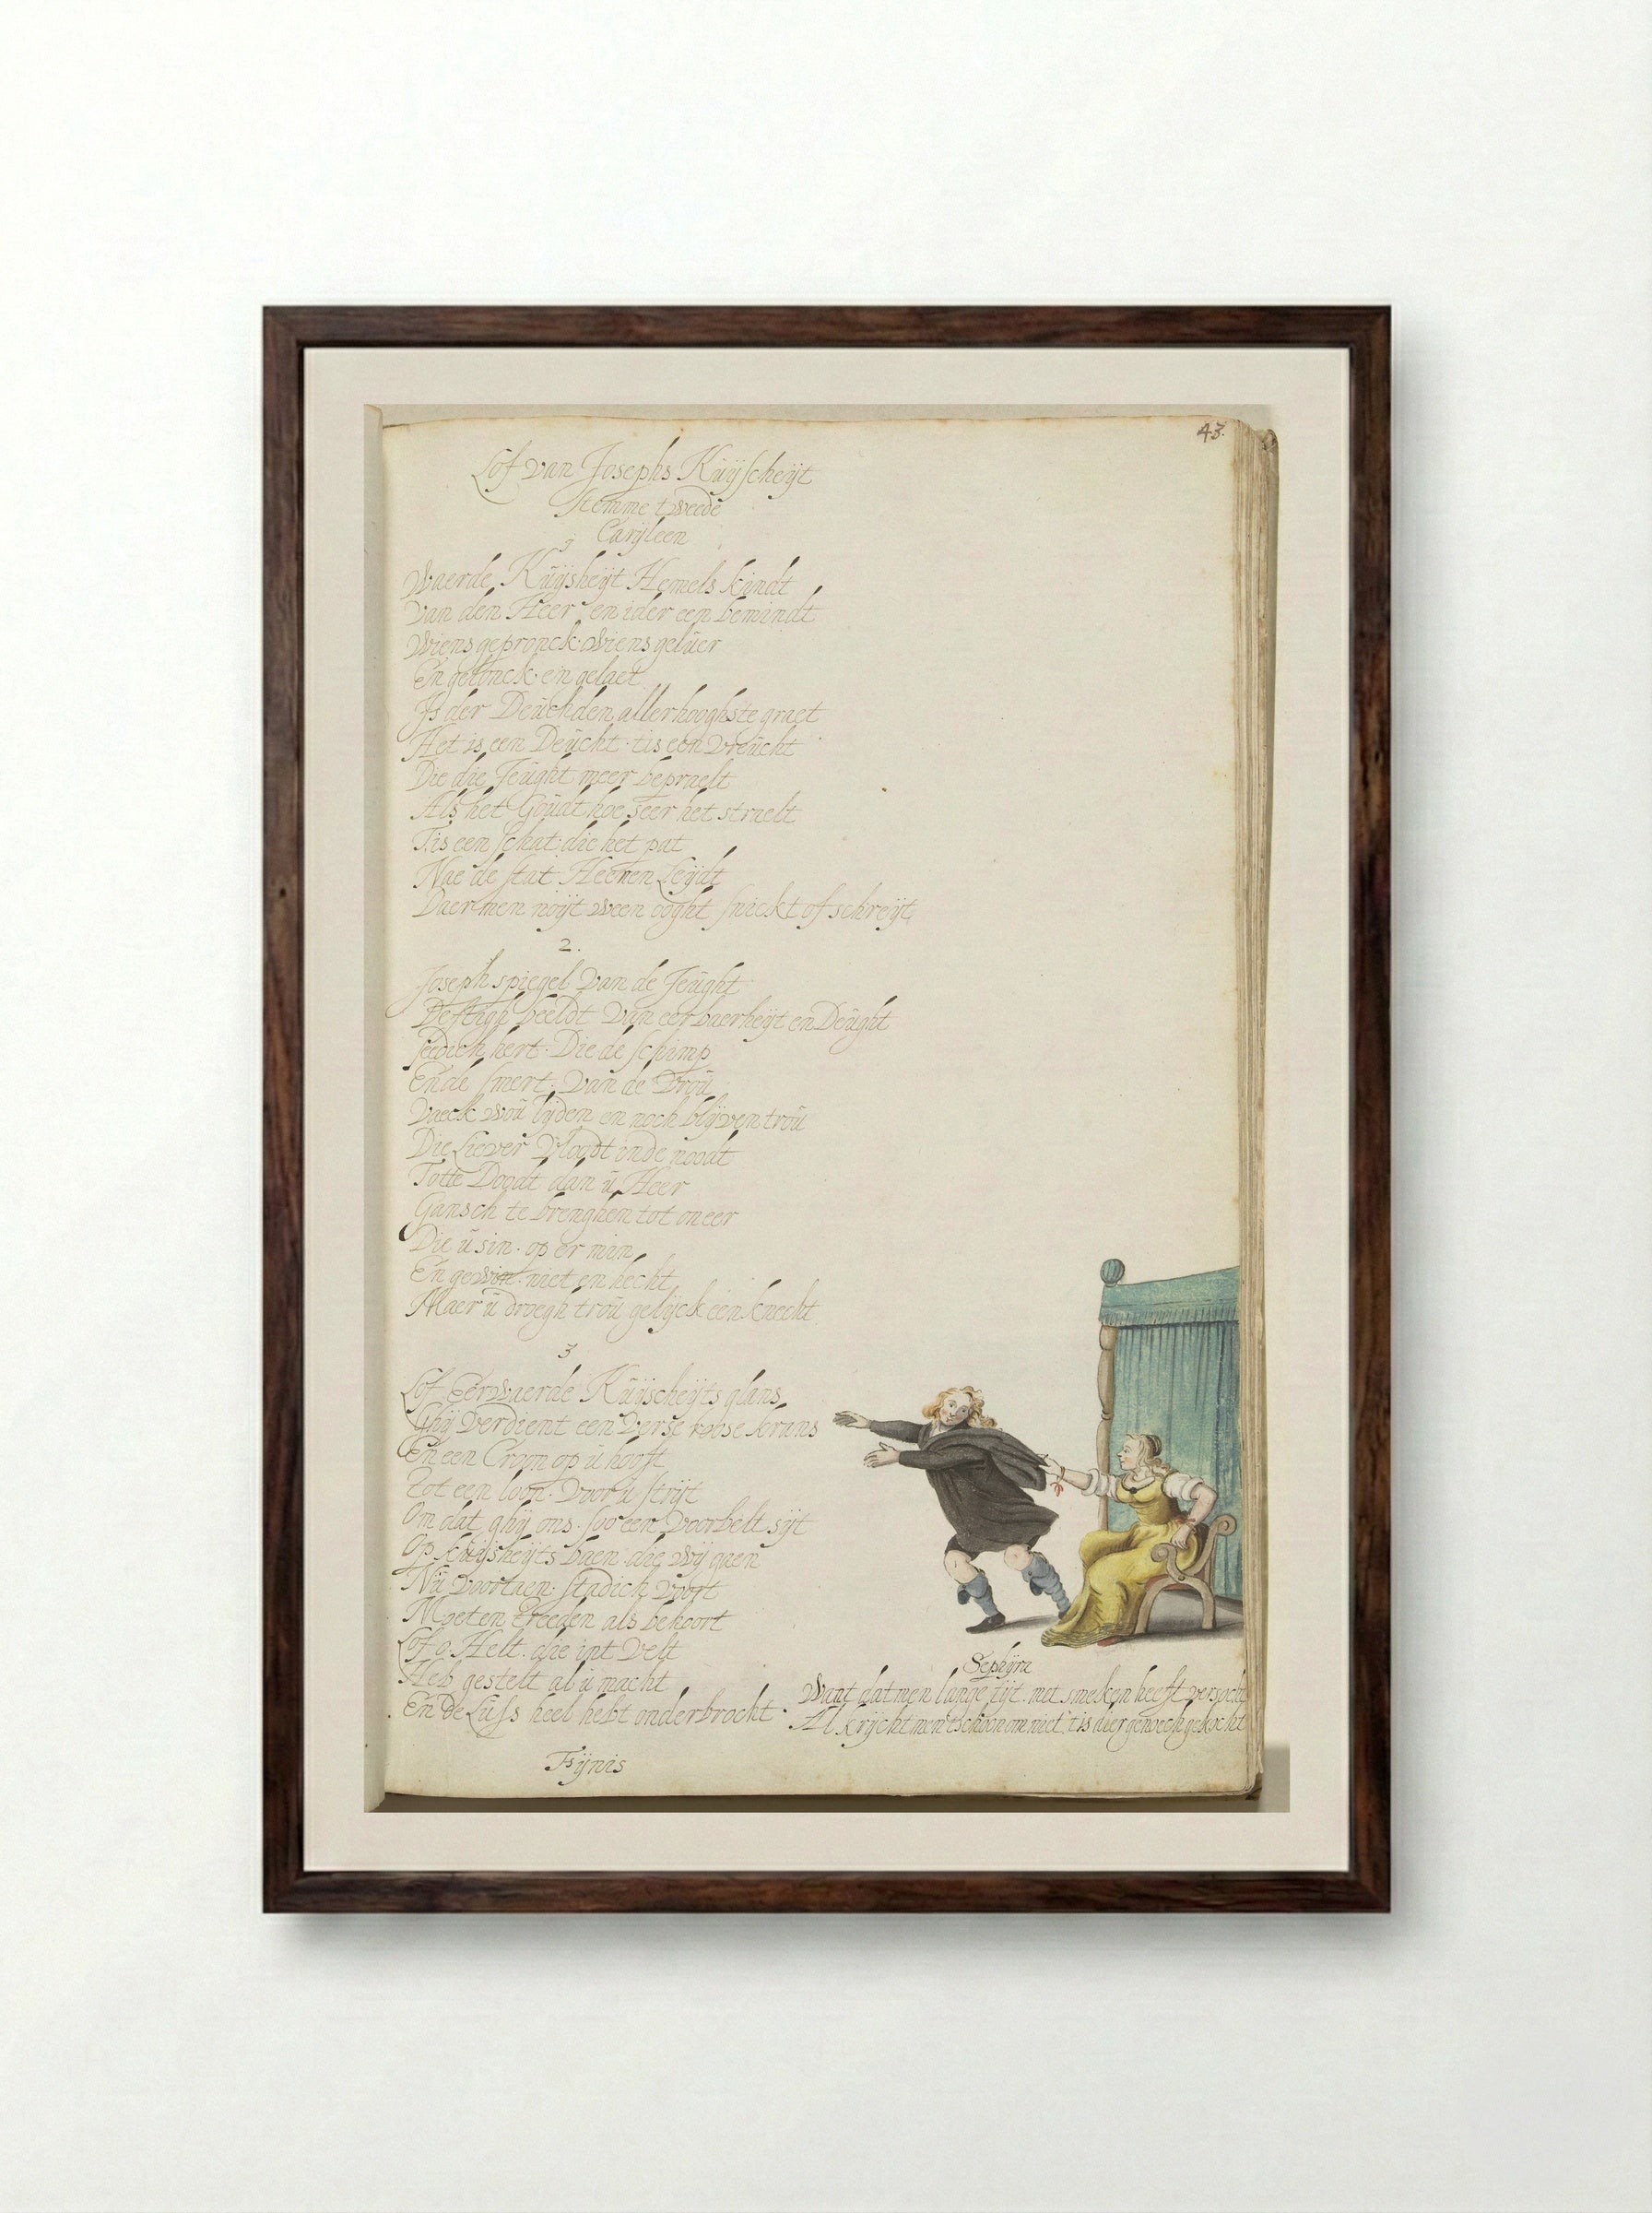 43.
Lof van Josephs Kuijscheijt
Stemme tweede
Carijleen
Waerde Kuijsheijt Hemels kindt
Van den Heer en ider een bemindt
Wiens gepronck wiens geluer
En gelonck en gelaet
Is der Deuchden allerhooghste graet
Het is een Deucht tis een vreucht
Die die Jeught meer bepraelt
Als het Goudt hoe seer het straelt
Tis een schat die het pat
Nae de stat Heenen Leijdt
Daer men noijt ween ooght snickt of schreijt
2.
Joseph spiegel van de Jeught
Deftigh beeldt van eerbaerheijt en Deught
seedich hert Die de schimp
Ende smert van de vrou
Vaeck wou lijden en noch blijven trou
Die Liever vloodt inde noodt
Totte Doodt dan u Heer
Gansch te brenghen tot oneer
Die u sin op er min
En gewin niet en hecht
Maer u droegh trou gelijck een knecht
3
Lof Eerwaerde Kuijscheijts glans
Ghij verdient een verse roose krans
En een Croon op u hooft
Tot een loon voor u strijt
Om dat ghij ons soo een voorbelt sijt
Op kuijsheijts baen die wij gaen
Nu voortaen stadich voort
Moeten treeden als behoort
Lof o Helt die int velt
Heb gestelt al u macht
En de Luss heel hebt onderbrocht
Fijnis
Sephijra
Want datmen lange tijt met smeken heeft versocht
Al krijcht men tschoon om niet tis dier genoech gekocht